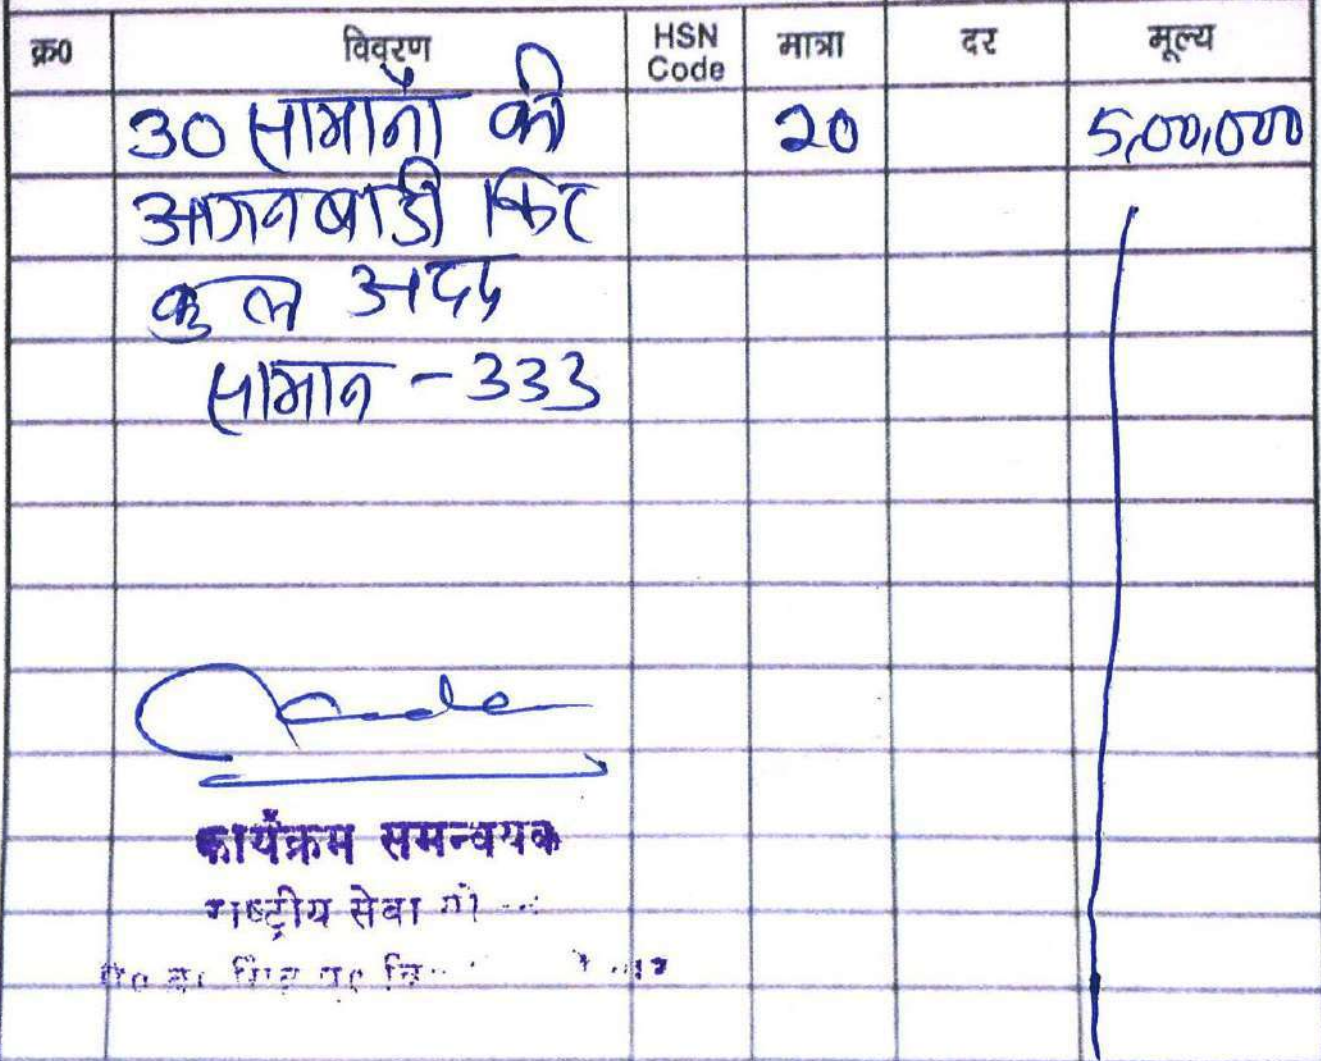 क्र० विवरण HSN Code मात्रा दर मूल्य
30 सामानों की 20 5,00,000
आंगनबाडी किट
कुल अदद
सामान - 333
कार्यक्रम समन्वयक
राष्ट्रीय सेवा